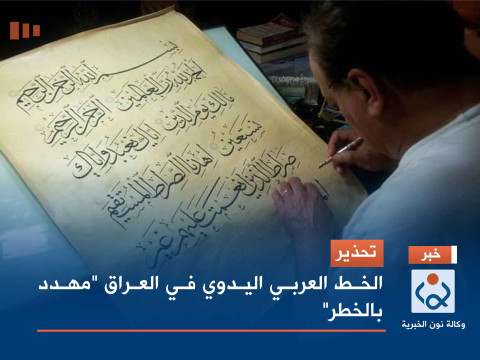 بسم الله الرحمن الرحيم
الحمد لله رب العالمين الرحمن الرحيم
مالك يوم الدين اياك نعبد واياك
نستعين اهدنا الصراط المستقيم
صراط الذين انعمت عليهم غير
تحذير
خبر
الخط العربي اليدوي في العراق "مهدد
بالخطر"
وكالة نون الخبرية